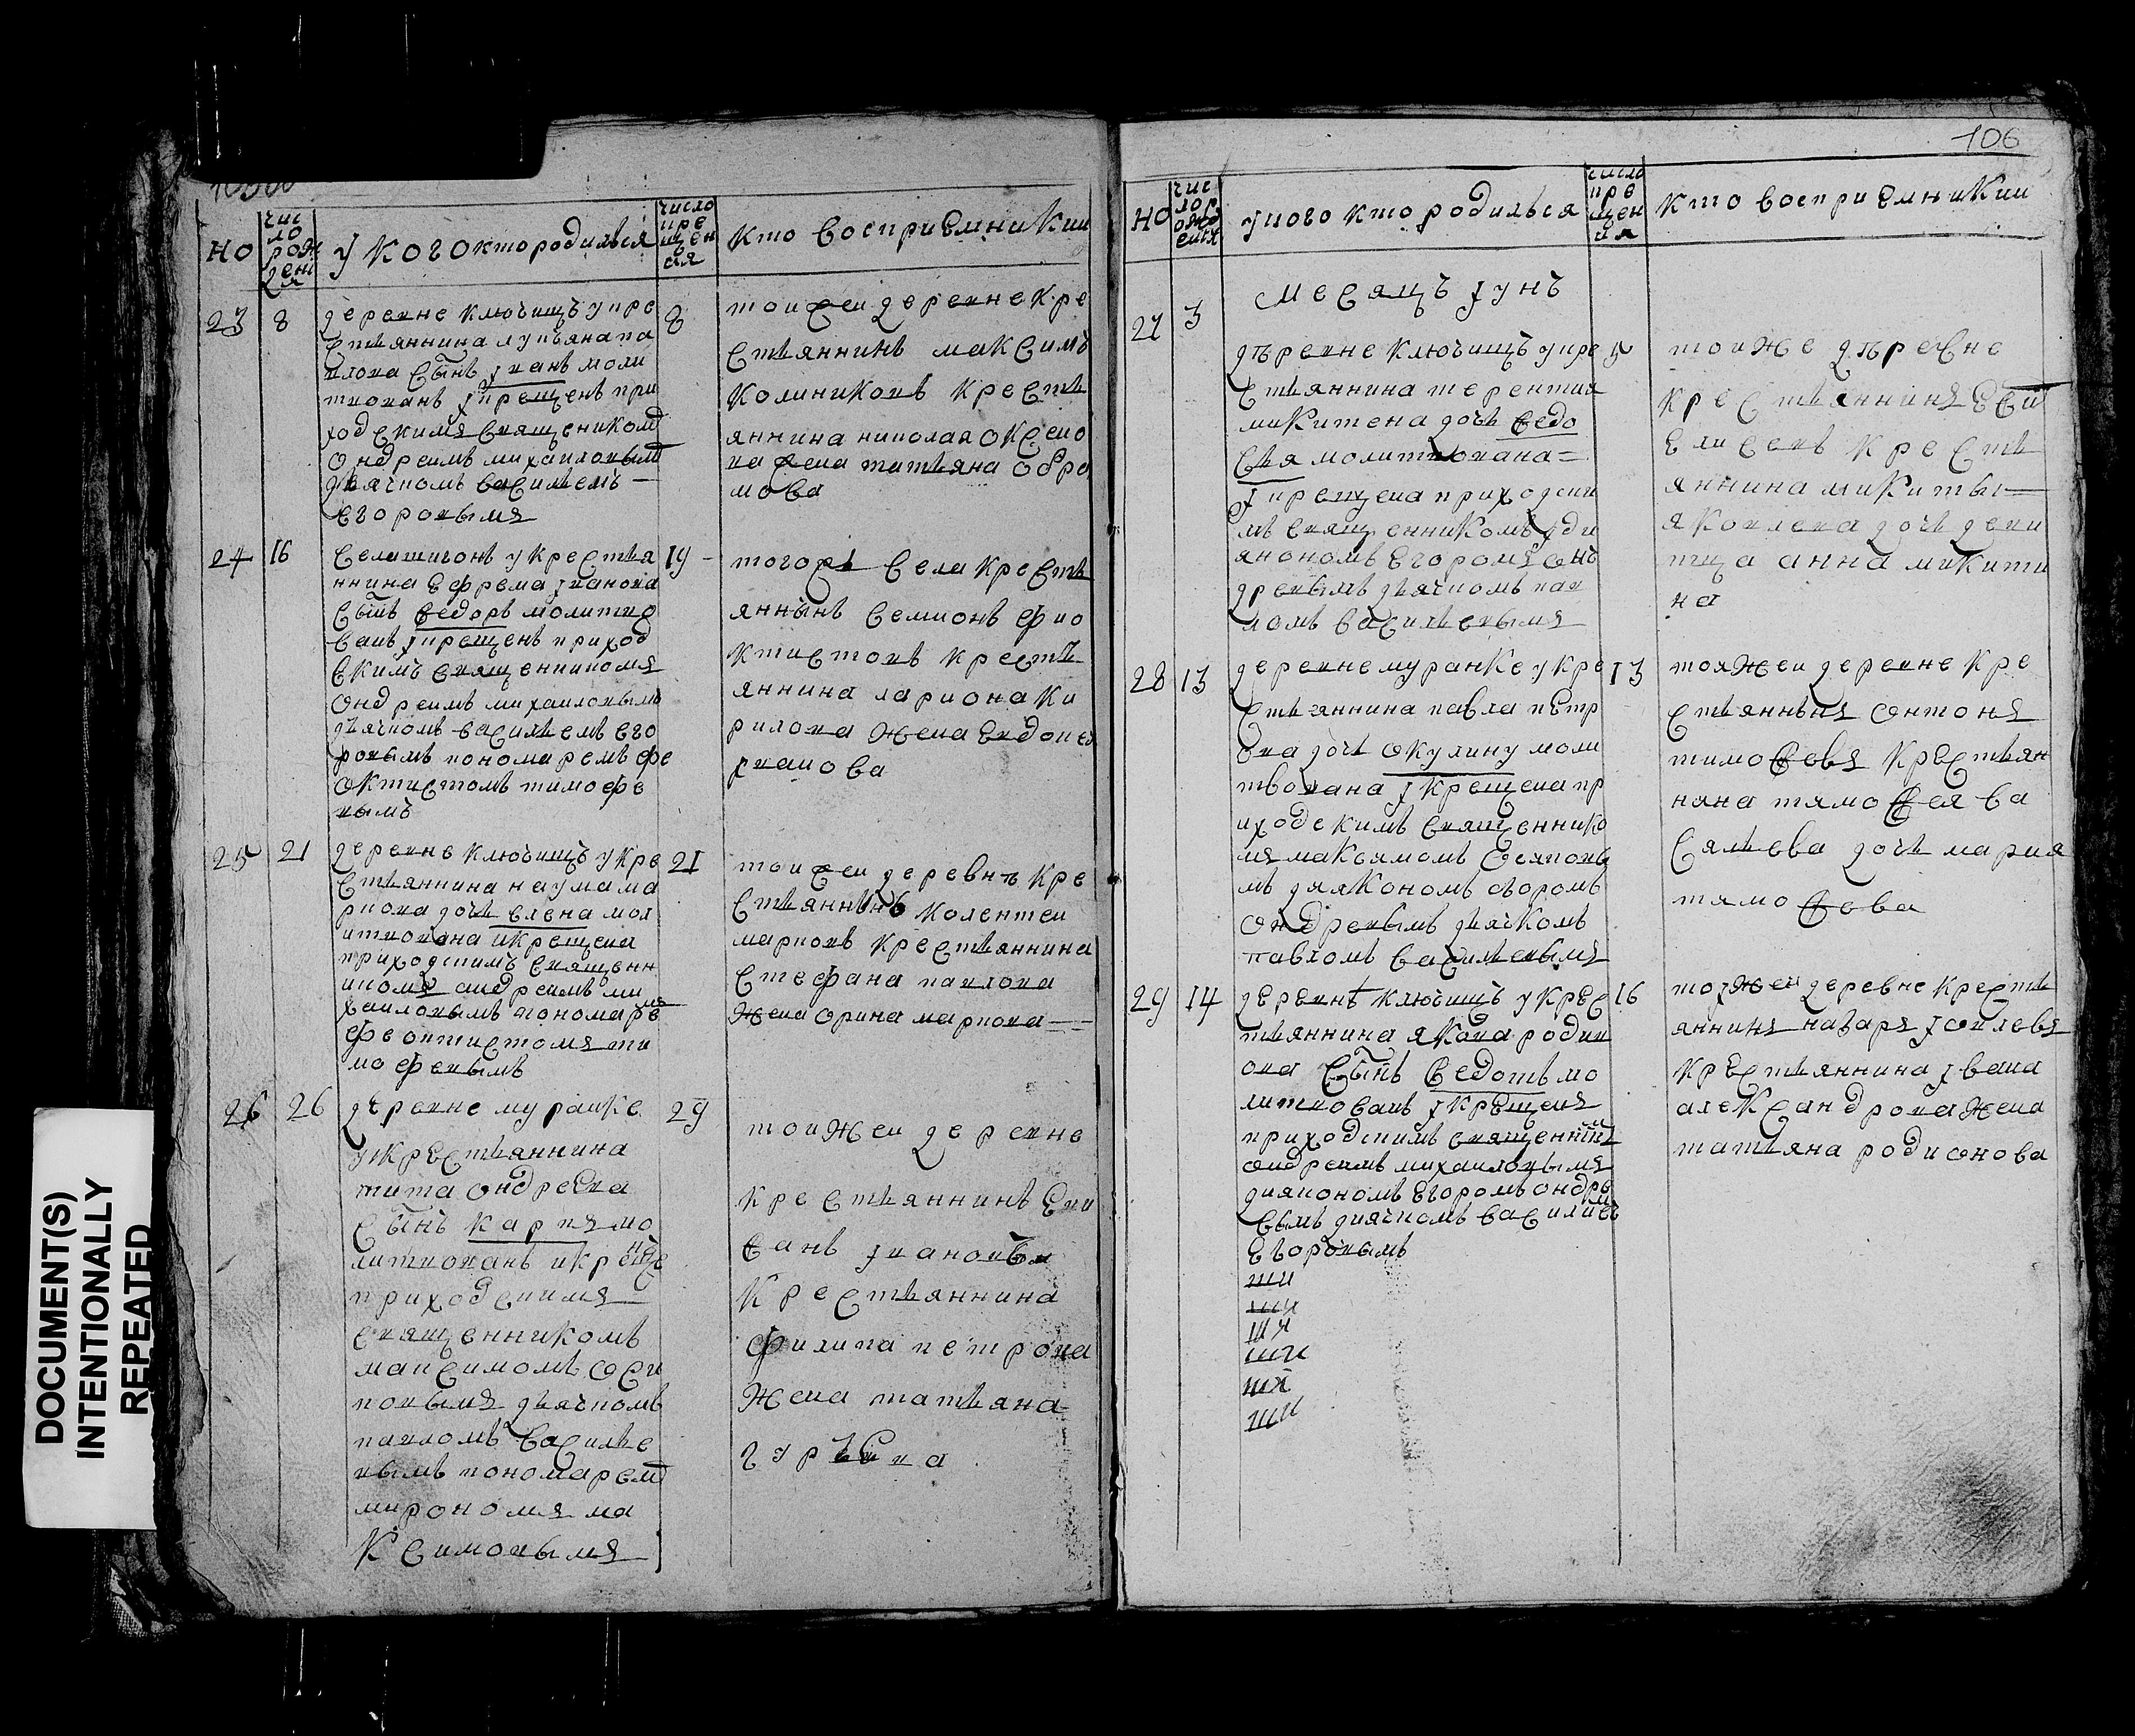 106
НО
число рождения
у кого кто родился
число крещения
кто восприемникии
23 8
деревне ключищъ у кре
стьяннина лукъяна па
влова сынъ иванъ моли
твованъ и крещенъ при
ходскимъ священикомъ
ондреимъ михаиловымъ
дьячкомъ васильемъ
егоровымъ
8
тои жеи деревне кре
стьяннинъ максимъ
колиниковъ кресть
яннина николая
жена татьяна обра
мова
24 16
у крестья
ннина ефрема иванова
сынъ федоръ молитво
ванъ и крещенъ приход
скимъ священникомъ
ондреимъ михаиловымъ
дьячкомъ васильемъ его
ровымъ пономаремъ фе
октистомъ тимофе
вымъ
19
тогожъ села кресть
яннынъ семионъ фио
ктистовъ кресть
яннина лариона ки
рилова жена евдокея
иванова
25 21
деревне ключищъ у кре
стьяннина наума ма
ркова дочь елена мол
итвована и крещена
приходскимъ священн
икомъ андреимъ ми
хаиловымъ пономаремъ
феоктистомъ ти
мофевымъ
21
тои жеи деревнѣ кре
стьяннынъ колентеи
марковъ крестьяннина
стефана павлова
жена орина маркова
26 26
деревне муранке
у крестьяннина
тита ондреева
сынъ карпъ мо
литвованъ и крещенъ
приходскимъ
священникомъ
максимомъ оси
повымъ дьячкомъ
павломъ василье
вымъ пономаремъ
мирономъ ма
ксимовымъ
29
тои жеи деревне
крестьяннинъ
иванов
крестьяннина
филипа петрова
жена татьяна
НО
число рождения
у кого кто родилься
число крещения
кто восприемникии
месяцъ иунъ
27 3
дѣревне ключищъ у кре
стьяннина терентия
микитена дочь федо
сья молитвована
и крещена приходски
мъ священникомъ
диякономъ егоромъ онъ
древымъ дьячкомъ пав
ломъ васильевымъ
5
тои же дѣревне
крестьяннинъ
елисеевъ кресть
яннина микиты
яковлева дочь деви
тца анна микити
на
28 13
деревне муранке у кре
стьяннина павла петр
ова дочь окулину моли
твована и крещена пр
иходскимъ священнико
мъ максимомъ осиповы
мъ дияконом егоромъ
ондревымъ дьячкомъ
павломъ васильевымъ
13
тояжеи деревне кре
стьяннынъ онтонъ
тимофевъ крестьян
нина тимофея ва
сильева дочь мария
тямофева
29 14
деревнѣ ключищъ у крес
тьяннина якова родив
ова сынъ федотъ мо
литвованъ и крещенъ
приходскимъ священник
ондреимъ михаиловымъ
дияконом егоромъ ондре
вымъ диячкомъ василиемъ
егоровымъ
16
тои жеи деревне кресть
яннинъ назаръ иовлевъ
крестьяннина ивана
александрова жена
татьяна родионова
DOCUMENT(S)
INTENTIONALLY
REPEATED